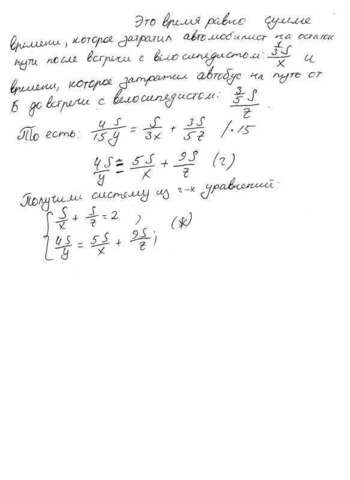 Это время равно сумме
времени, которое затратил автомобилист на остаток
пути после встречи с велосипедистом: (1/3 S)/x и
времени, которое затратил автобус на путь от
Б до встречи с велосипедистом: (3/5 S)/z.
То есть: 4S/15y = S/3x + 3S/5z /·15
4S/y = 5S/x + 9S/z (2)
Получили систему из 2-х уравнений:
{ S/x + S/z = 2 , (*)
4S/y = 5S/x + 9S/z ;